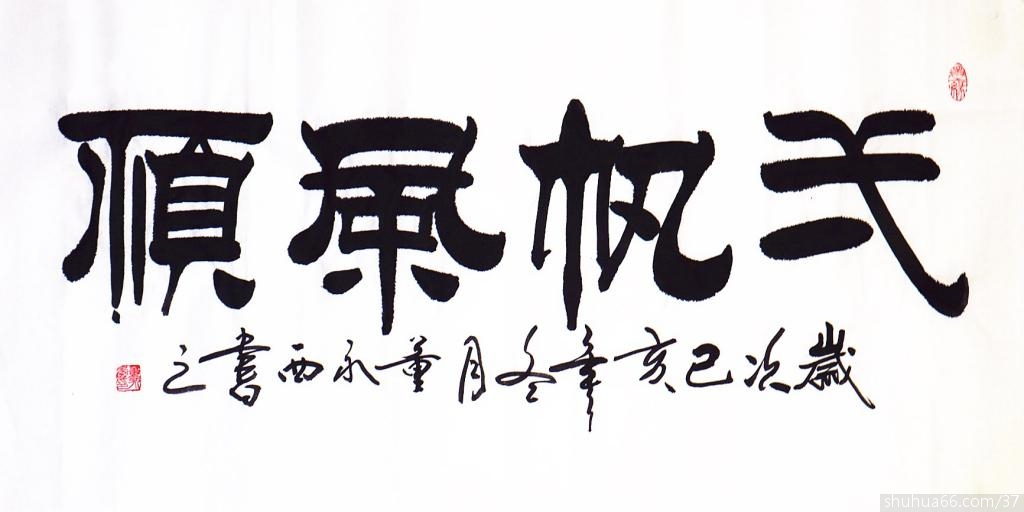 弌帆風順
歲次己亥年冬月董永西書之
shuhua66.com/37